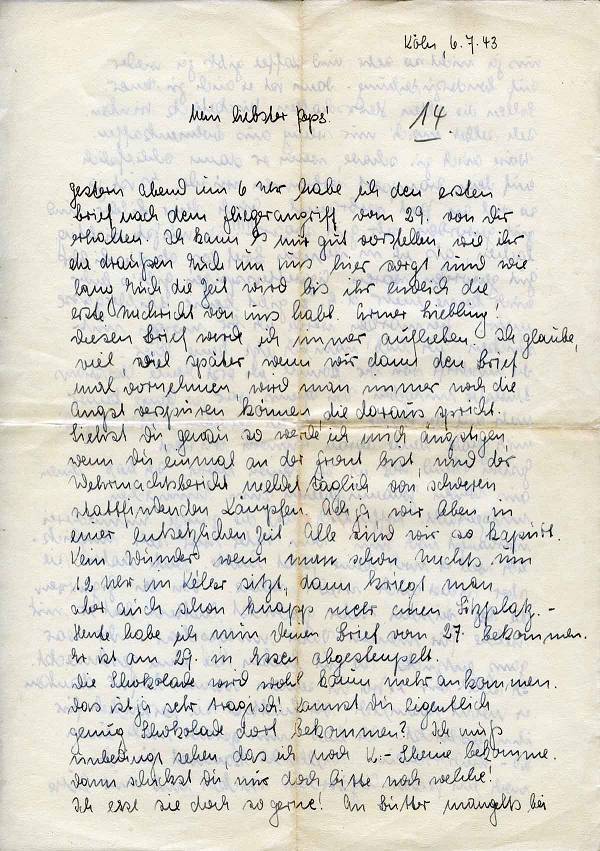 Köln, 6.7.43
Mein liebster Paps! 14.
gestern abend um 6 Uhr habe ich den ersten
Brief nach dem Fliegerangriff vom 29. von Dir
erhalten. Ich kann es mir gut vorstellen, wie ihr
da draußen Euch um uns hier sorgt und wie
lang Euch die Zeit wird bis ihr endlich die
erste Nachricht von uns habt. Armer Liebling!
Diesen Brief werde ich immer aufheben. Ich glaube,
viel, viel später, wenn wir dann den Brief
mal vornehmen, wird man immer noch die
Angst verspüren können, die daraus spricht.
Siehst Du, genau so werde ich mich ängstigen,
wenn Du einmal an der Front bist, und der
Wehrmachtsbericht meldet täglich von schweren
stattfindenden Kämpfen. Ach ja, wir leben in
einer entsetzlichen Zeit. Alle sind wir so kaputt.
Kein Wunder, wenn man schon nachts um
12 Uhr im Keller sitzt, dann kriegt man
aber auch schon knapp mehr einen Sitzplatz. -
Heute habe ich nun Deinen Brief vom 27. bekommen.
Er ist am 29. in Essen abgestempelt.
Die Schokolade wird wohl kaum mehr ankommen.
Das ist ja sehr tragisch! Kannst Du eigentlich
genug Schokolade dort bekommen? Ich muß
unbedingt sehen, das ich noch K.-Scheine bekomme.
Dann schickst Du mir doch bitte noch welche!
Ich esse sie doch so gerne! An Butter mangelts bei